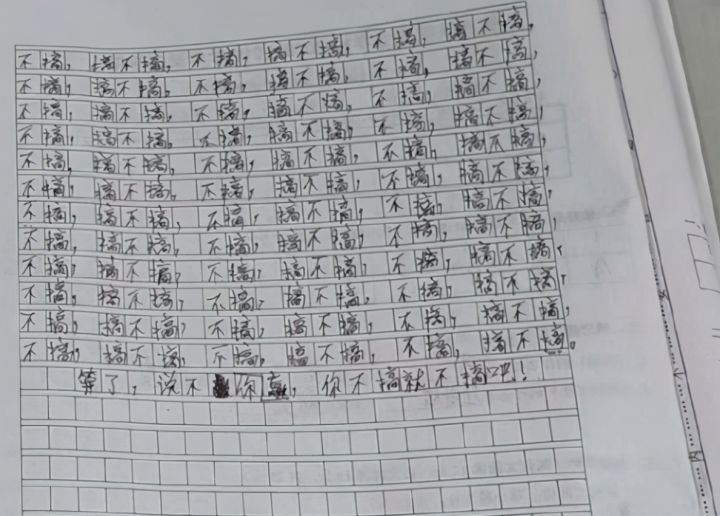 不搞，搞不搞，不搞，搞不搞，不搞，搞不搞，
不搞，搞不搞，不搞，搞不搞，不搞，搞不搞，
不搞，搞不搞，不搞，搞不搞，不搞，搞不搞，
不搞，搞不搞，不搞，搞不搞，不搞，搞不搞，
不搞，搞不搞，不搞，搞不搞，不搞，搞不搞，
不搞，搞不搞，不搞，搞不搞，不搞，搞不搞，
不搞，搞不搞，不搞，搞不搞，不搞，搞不搞，
不搞，搞不搞，不搞，搞不搞，不搞，搞不搞，
不搞，搞不搞，不搞，搞不搞，不搞，搞不搞，
不搞，搞不搞，不搞，搞不搞，不搞，搞不搞，
不搞，搞不搞，不搞，搞不搞，不搞，搞不搞，
不搞，搞不搞，不搞，搞不搞，不搞，搞不搞。
算了，说不你赢，你不搞就不搞吧！